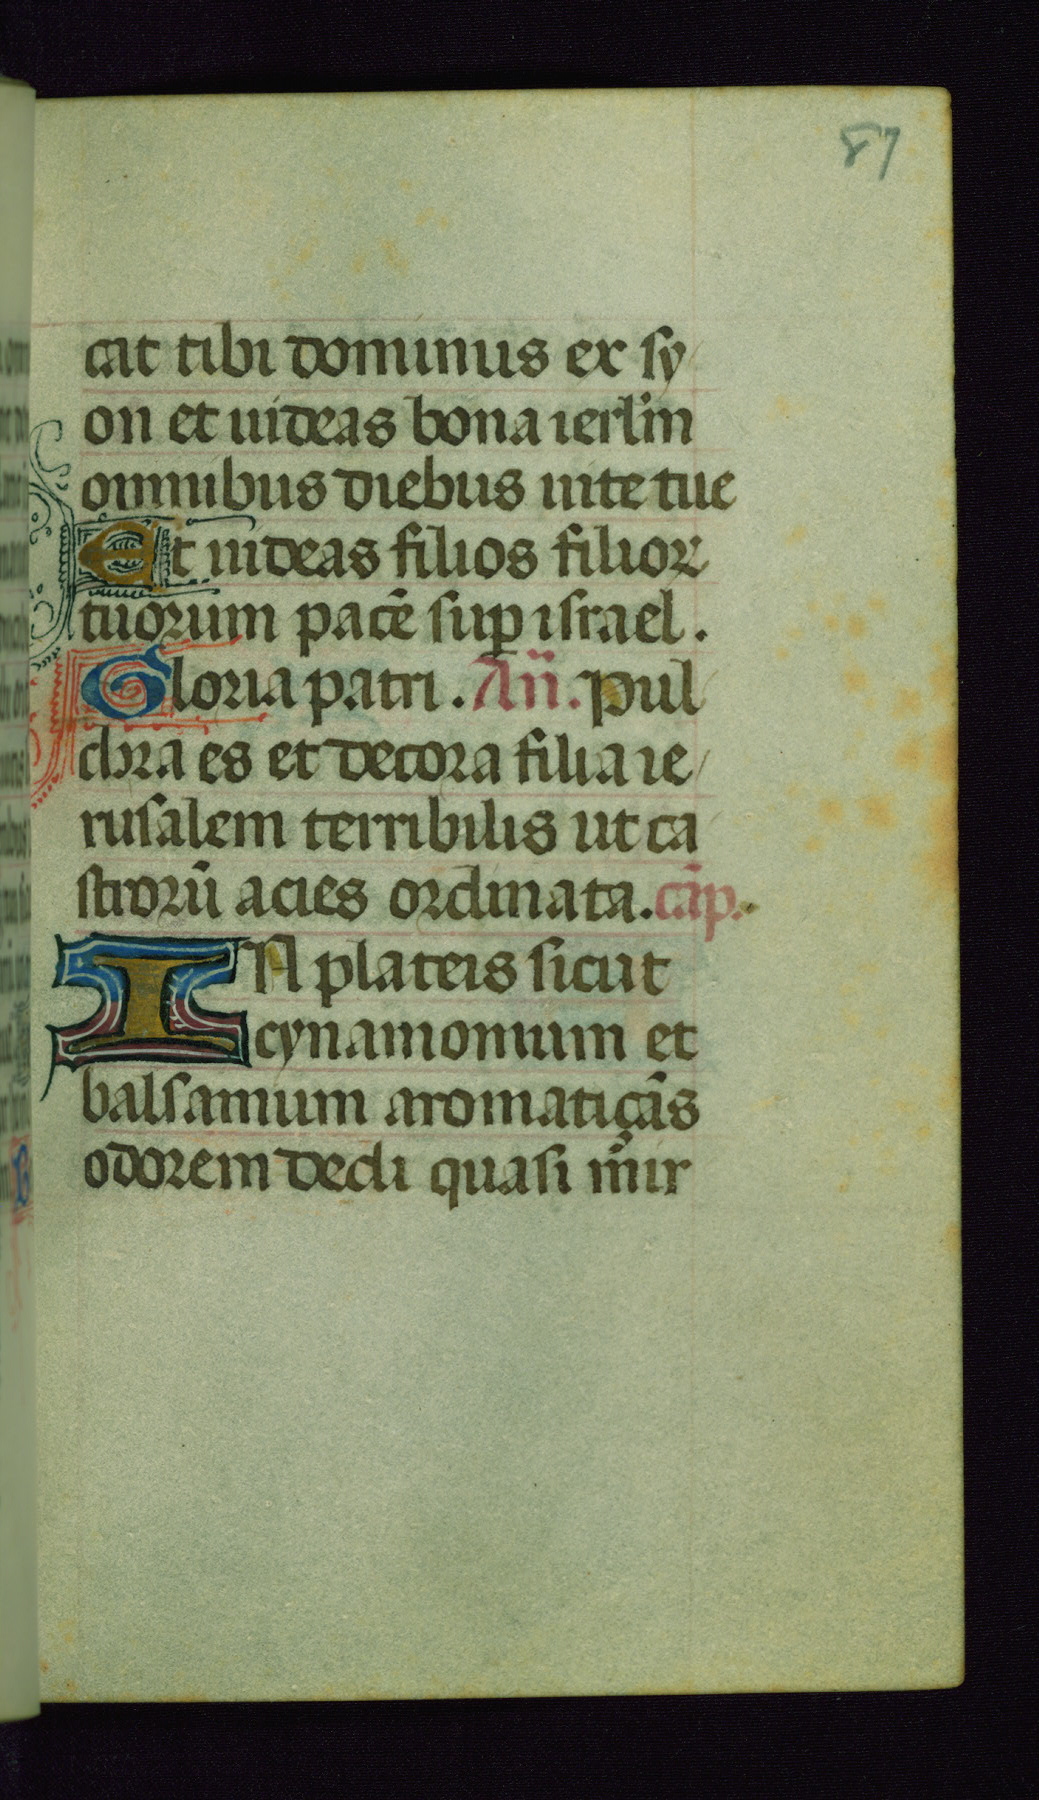 87
cat tibi dominus ex sy
on et uideas bona ierl̃m
omnibus diebus uite tue
Et uideas filios filior
tuorum pacẽ sup̱ israel.
Gloria patri. Añ. Pul
chra es et decora filia ie
rusalem terribilis ut ca
strorũ acies ordinata. cãp.
IN plateis sicut
cynamomum et
balsamum aromatiçãs
odorem dedi quasi m̃ir